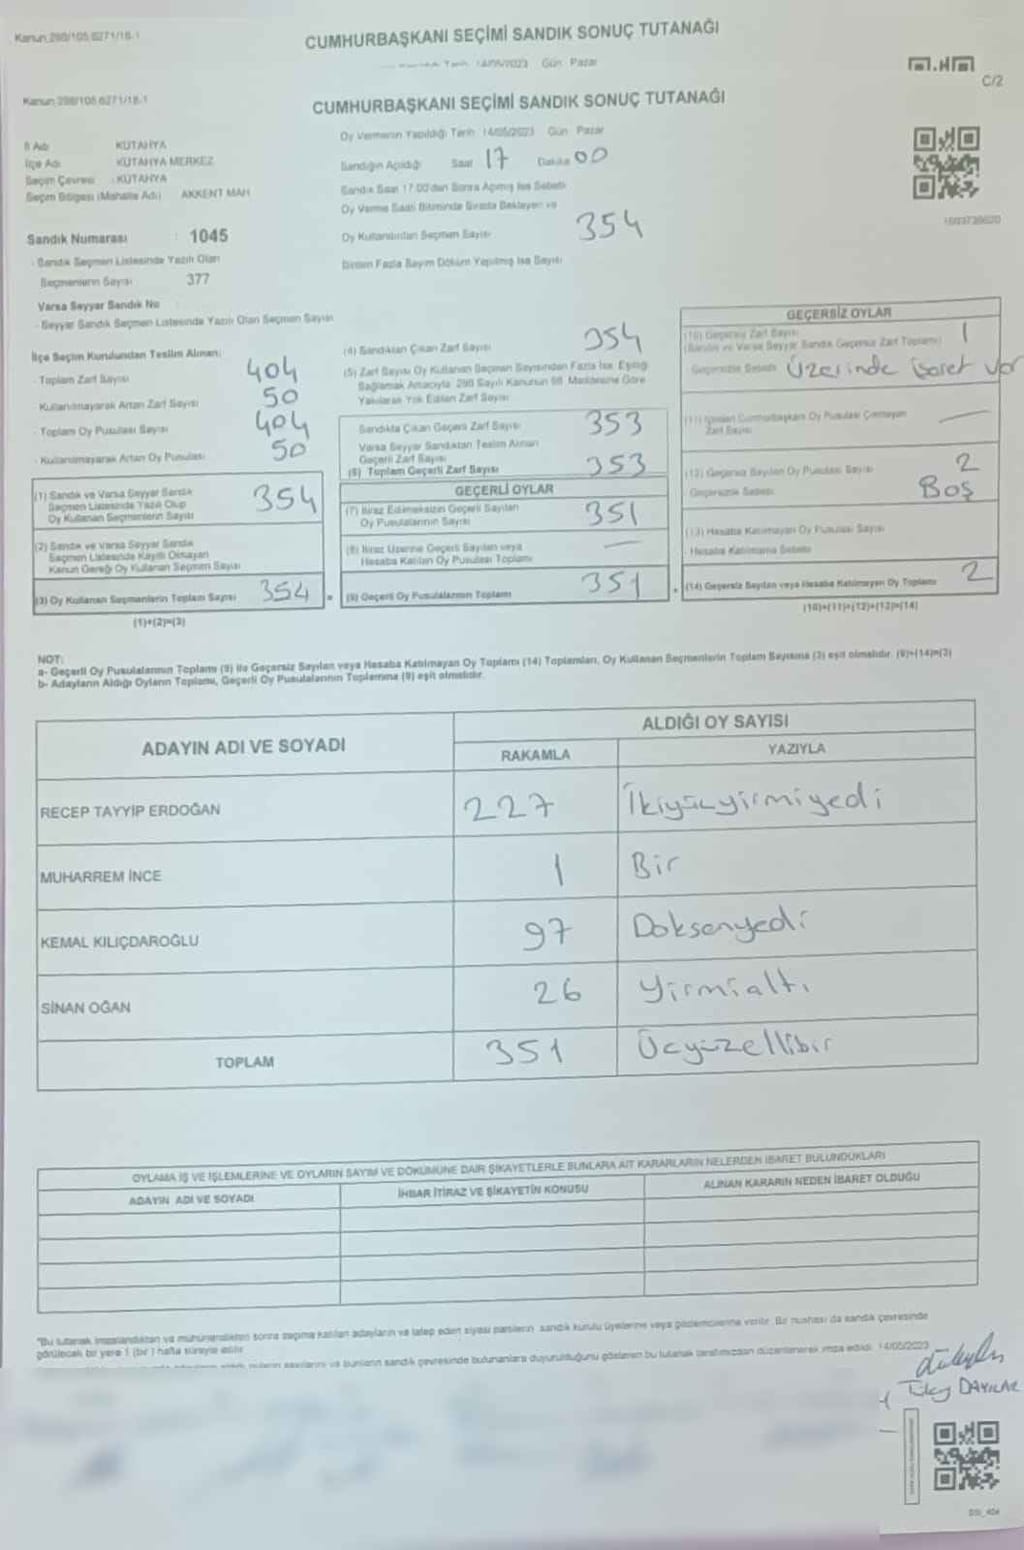 Kanun 298/105 6271/18-1
CUMHURBAŞKANI SEÇİMİ SANDIK SONUÇ TUTANAĞI
Tarih 14/05/2023 Gün Pazar
C/2
Kanun 298/105 6271/18-1
CUMHURBAŞKANI SEÇİMİ SANDIK SONUÇ TUTANAĞI
Oy Vermenin Yapıldığı Tarih 14/05/2023 Gün Pazar
İl Adı KÜTAHYA
İlçe Adı KÜTAHYA MERKEZ
Seçim Çevresi : KÜTAHYA
Seçim Bölgesi (Mahalle Adı) AKKENT MAH
Sandığın Açıldığı Saat 17 Dakika 00
Sandık Saat 17:00'den Sonra Açılmış İse Sebebi
Oy Verme Saati Bitiminde Sırada Bekleyen ve
Oy Kullandırılan Seçmen Sayısı 354
Birden Fazla Sayım Döküm Yapılmış İse Sayısı
Sandık Numarası : 1045
- Sandık Seçmen Listesinde Yazılı Olan
Seçmenlerin Sayısı 377
Varsa Seyyar Sandık No
- Seyyar Sandık Seçmen Listesinde Yazılı Olan Seçmen Sayısı
İlçe Seçim Kurulundan Teslim Alınan:
- Toplam Zarf Sayısı 404
- Kullanılmayarak Artan Zarf Sayısı 50
- Toplam Oy Pusulası Sayısı 404
- Kullanılmayarak Artan Oy Pusulası 50
(1) Sandık ve Varsa Seyyar Sandık
Seçmen Listesinde Yazılı Olup
Oy Kullanan Seçmenlerin Sayısı 354
(2) Sandık ve Varsa Seyyar Sandık
Seçmen Listesinde Kayıtlı Olmayan
Kanun Gereği Oy Kullanan Seçmen Sayısı
(3) Oy Kullanan Seçmenlerin Toplam Sayısı 354
(1)+(2)=(3)
(4) Sandıktan Çıkan Zarf Sayısı 354
(5) Zarf Sayısı Oy Kullanan Seçmen Sayısından Fazla İse, Eşitliği
Sağlamak Amacıyla 298 Sayılı Kanunun 98. Maddesine Göre
Yakılarak Yok Edilen Zarf Sayısı
Sandıkta Çıkan Geçerli Zarf Sayısı 353
Varsa Seyyar Sandıktan Teslim Alınan
Geçerli Zarf Sayısı
(6) Toplam Geçerli Zarf Sayısı 353
GEÇERLİ OYLAR
(7) İtiraz Edilmeksizin Geçerli Sayılan
Oy Pusulalarının Sayısı 351
(8) İtiraz Üzerine Geçerli Sayılan veya
Hesaba Katılan Oy Pusulası Toplamı —
(9) Geçerli Oy Pusulalarının Toplamı 351
GEÇERSİZ OYLAR
(10) Geçersiz Zarf Sayısı
(Sandık ve Varsa Seyyar Sandık Geçersiz Zarf Toplamı) 1
Geçersizlik Sebebi Üzerinde işaret var
(11) İçinden Cumhurbaşkanı Oy Pusulası Çıkmayan
Zarf Sayısı —
(12) Geçersiz Sayılan Oy Pusulası Sayısı 2
Geçersizlik Sebebi Boş
(13) Hesaba Katılmayan Oy Pusulası Sayısı
- Hesaba Katılmama Sebebi
(14) Geçersiz Sayılan veya Hesaba Katılmayan Oy Toplamı 2
(10)+(11)+(12)+(13)=(14)
NOT:
a- Geçerli Oy Pusulalarının Toplamı (9) ile Geçersiz Sayılan veya Hesaba Katılmayan Oy Toplamı (14) Toplamları, Oy Kullanan Seçmenlerin Toplam Sayısına (3) eşit olmalıdır. (9)+(14)=(3)
b- Adayların Aldığı Oyların Toplamı, Geçerli Oy Pusulalarının Toplamına (9) eşit olmalıdır.
ADAYIN ADI VE SOYADI
ALDIĞI OY SAYISI
RAKAMLA YAZIYLA
RECEP TAYYİP ERDOĞAN 227 İkiyüzyirmiyedi
MUHARREM İNCE 1 Bir
KEMAL KILIÇDAROĞLU 97 Doksanyedi
SİNAN OĞAN 26 Yirmialtı
TOPLAM 351 Üçyüzellibir
OYLAMA İŞ VE İŞLEMLERİNE VE OYLARIN SAYIM VE DÖKÜMÜNE DAİR ŞİKAYETLERLE BUNLARA AİT KARARLARIN NELERDEN İBARET BULUNDUKLARI
ADAYIN ADI VE SOYADI İHBAR İTİRAZ VE ŞİKAYETİN KONUSU ALINAN KARARIN NEDEN İBARET OLDUĞU
"Bu tutanak imzalandıktan ve mühürlendikten sonra seçime katılan adayların ve talep eden siyasi partilerin sandık kurulu üyelerine veya gözlemcilerine verilir. Bir nushası da sandık çevresinde
görülecek bir yere 1 (bir) hafta süreyle asılır.
sayılarını ve bunların sandık çevresinde bulunanlara duyurulduğunu gösteren bu tutanak tarafımızdan düzenlenerek imza edildi. 14/05/2023
DAYILAR